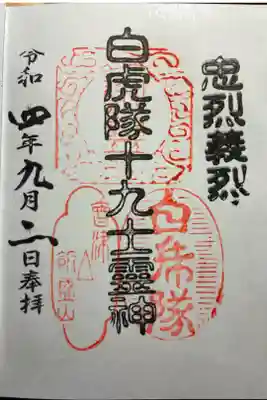 忠烈義烈
白虎隊十九士靈神
白虎隊
會津
飯盛山
令和四年九月二日奉拝